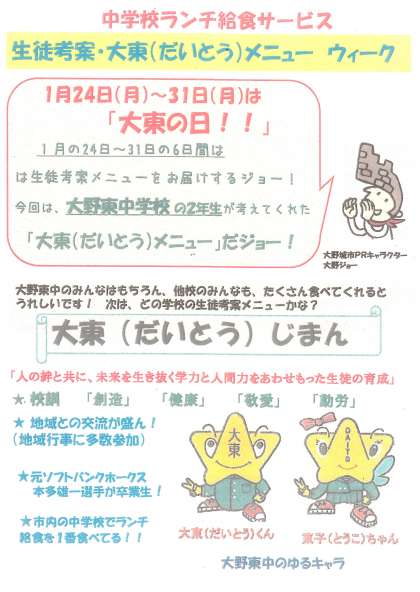 中学校ランチ給食サービス
生徒考案・大東(だいとう)メニュー ウィーク
1月24日(月)~31日(月)は
「大東の日!!」
1月の24日~31日の6日間は
は生徒考案メニューをお届けするジョー!
今回は、大野東中学校の2年生が考えてくれた
「大東(だいとう)メニュー」だジョー!
大野城市PRキャラクター
大野ジョー
大野東中のみんなはもちろん、他校のみんなも、たくさん食べてくれると
うれしいです! 次は、どの学校の生徒考案メニューかな?
大東(だいとう)じまん
「人の絆と共に、未来を生き抜く学力と人間力をあわせもった生徒の育成」
★ 校訓 「創造」 「健康」 「敬愛」 「勤労」
★ 地域との交流が盛ん!
(地域行事に多数参加)
★元ソフトバンクホークス
本多雄一選手が卒業生!
★市内の中学校でランチ
給食を1番食べてる!!
大東
DAITO
大東(だいとう)くん
東子(とうこ)ちゃん
大野東中のゆるキャラ